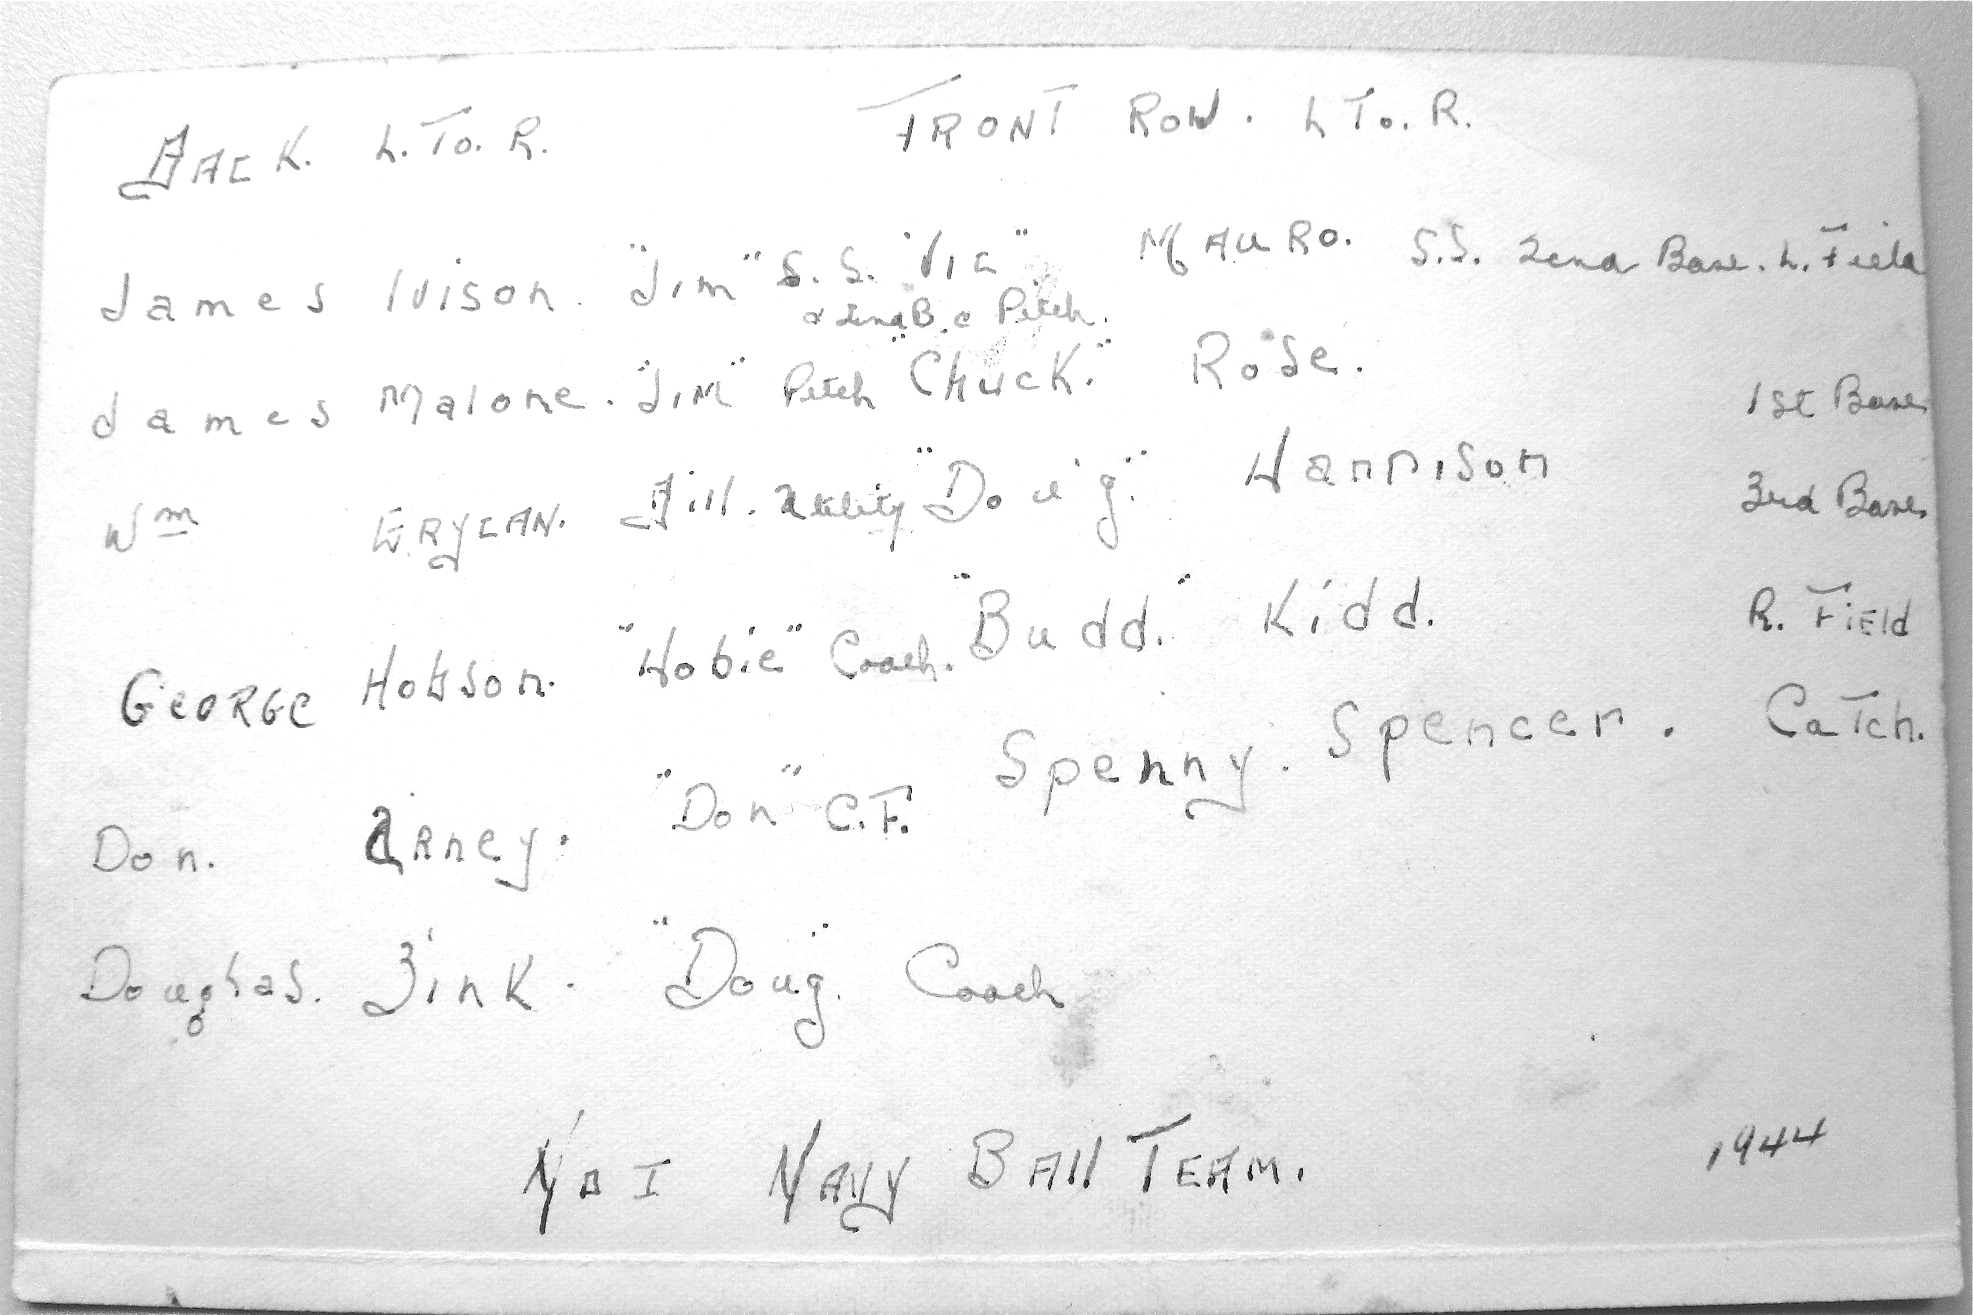 BACK. L. To. R. FRONT ROW. L To. R.
James Ivison. "Jim" S.S. "Vic" MAURO. S.S. 2cnd Base. L. Field
& 2ndB. & Pitch.
James Malone. "JIM" Pitch "Chuck." Rose. 1st Base
Wm ERYCAN. Bill. utility "Doug." Harrison 3rd Base
GEORGE Hobson. "Hobie" Coach. "Budd." Kidd. R. FiEld
Don. Arney. "Don" C.F. Spenny. Spencer. CaTch.
Douglas. Zink. "Doug". Coach
No I NAVY BAll TEAM. 1944